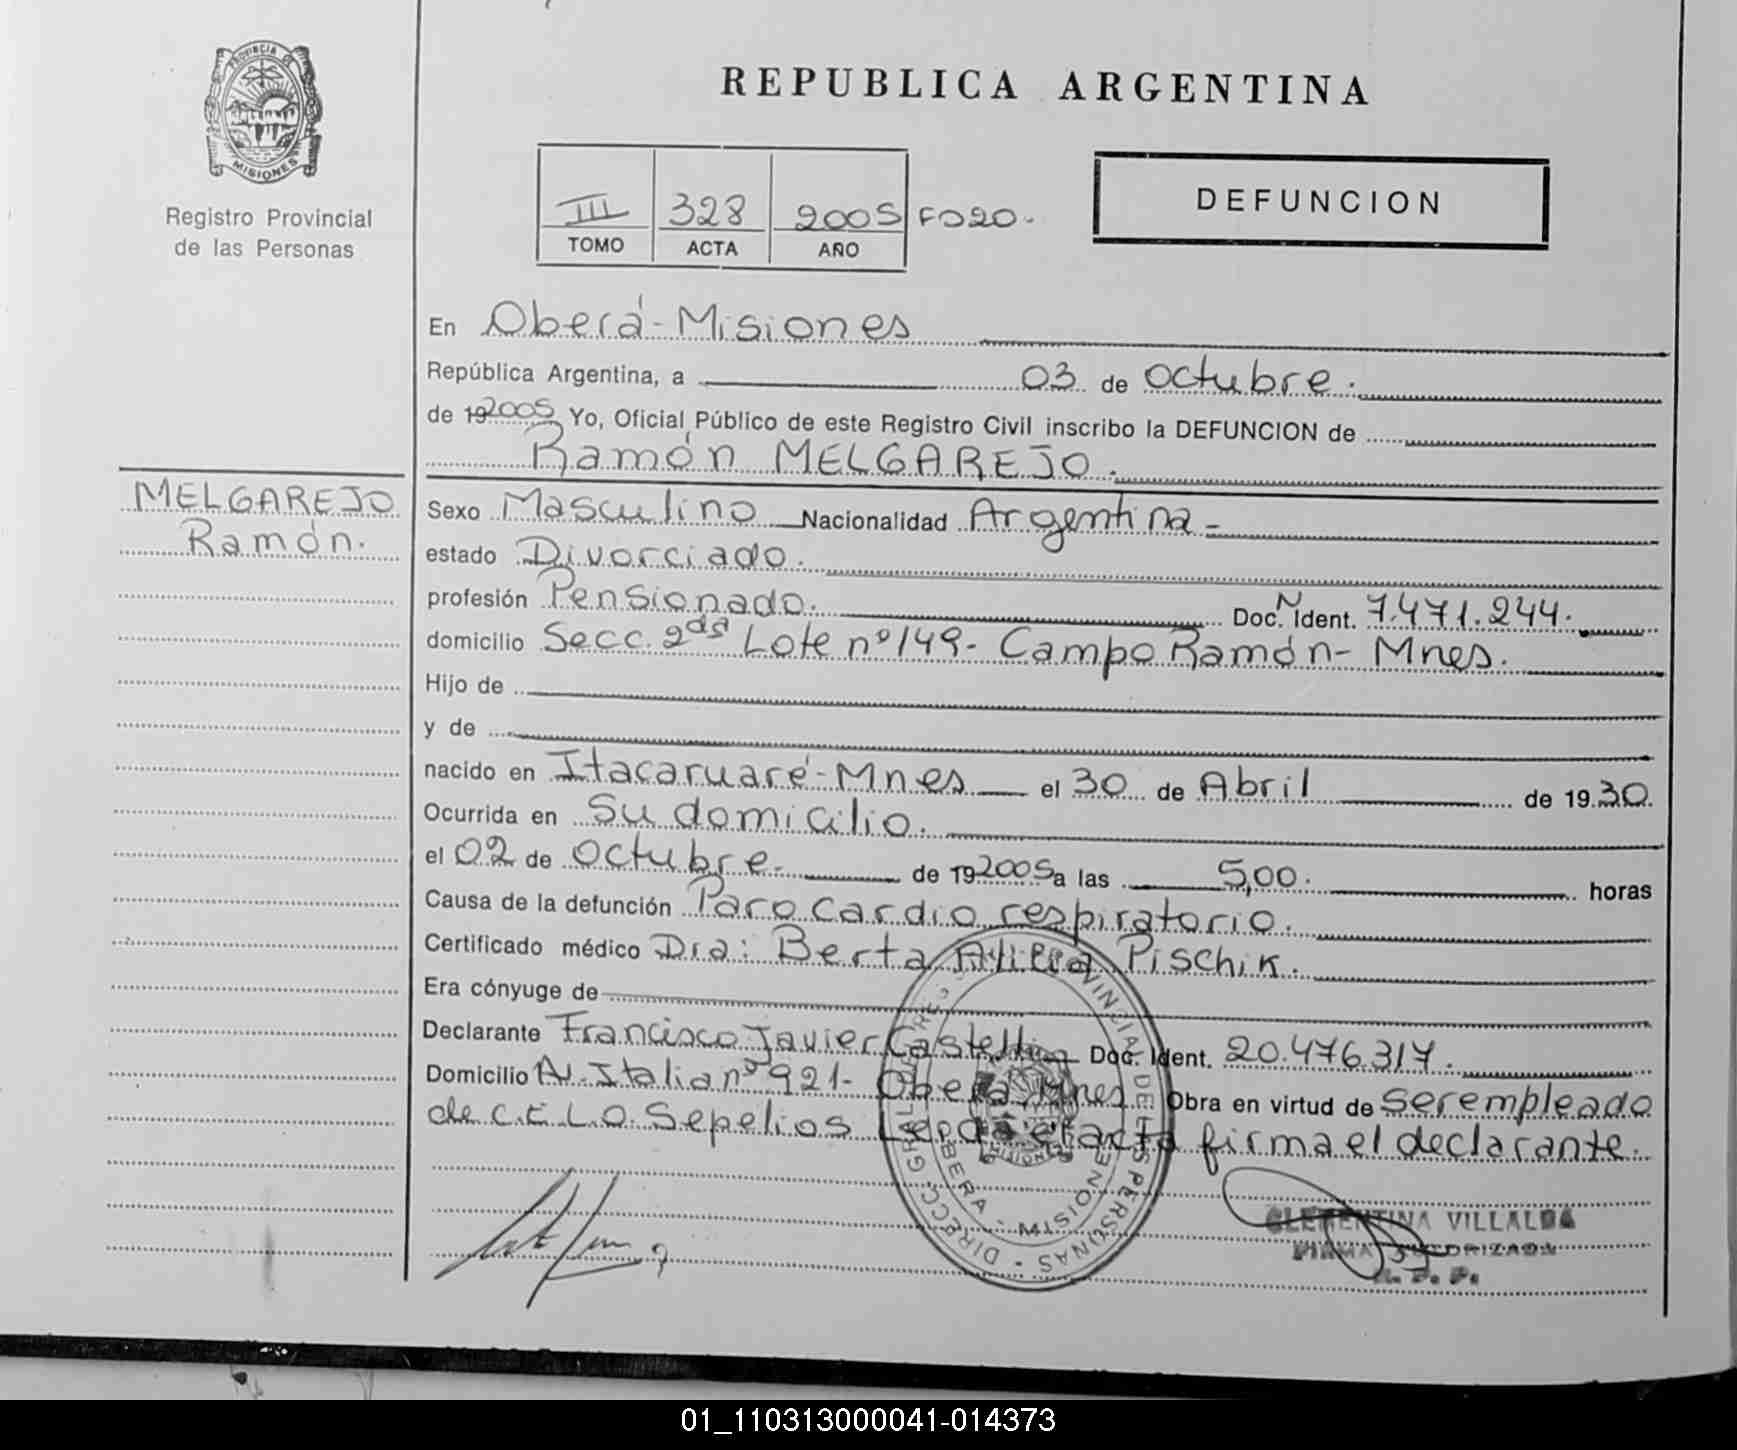 PROVINCIA DE
MISIONES
Registro Provincial
de las Personas
REPUBLICA ARGENTINA
III 328 2005 Fo20.
TOMO ACTA AÑO
DEFUNCION
En Oberá-Misiones
República Argentina, a 03 de octubre.
de 192005 Yo, Oficial Público de este Registro Civil inscribo la DEFUNCION de
Ramón MELGAREJO.
MELGAREJO
Ramón.
Sexo Masculino Nacionalidad Argentina-
estado Divorciado.
profesión Pensionado. Doc. N Ident. 7.471.244.
domicilio Secc. 2da Lote nº149- Campo Ramón- Mnes.
Hijo de
y de
nacido en Itacaruaré-Mnes el 30 de Abril de 1930.
Ocurrida en Su domicilio.
el 02 de octubre. de 192005 a las 5,00. horas
Causa de la defunción Paro cardio respiratorio.
Certificado médico Dra: Berta Pischik.
Era cónyuge de
Declarante Francisco Javier Doc. Ident. 20.476.317.
Domicilio Av. Italia nº 921- Oberá, Mnes. Obra en virtud de ser empleado
de C.E.L.O. Sepelios Leída el acta firma el declarante.
DE LAS PERSONAS - DIRECC. GRAL.
OBERA - MISIONES
CLEMENTINA VILLALBA
FIRMA AUTORIZADA
R. P. P.
01_110313000041-014373